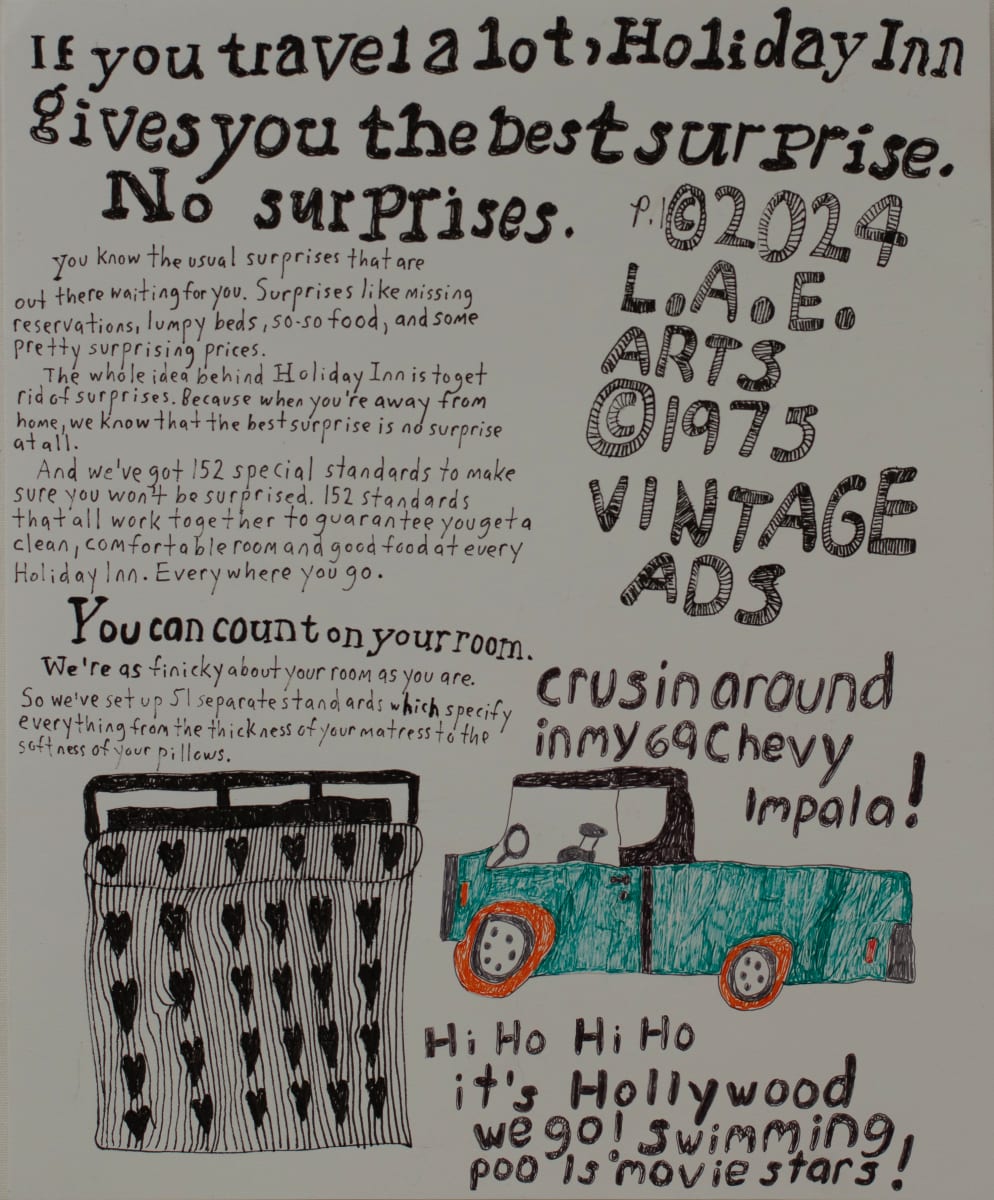 If you travel a lot, Holiday Inn
gives you the best surprise.
No surprises.
You know the usual surprises that are
out there waiting for you. Surprises like missing
reservations, lumpy beds, so-so food, and some
pretty surprising prices.
The whole idea behind Holiday Inn is to get
rid of surprises. Because when you're away from
home, we know that the best surprise is no surprise
at all.
And we've got 152 special standards to make
sure you won't be surprised. 152 standards
that all work together to guarantee you get a
clean, comfortable room and good food at every
Holiday Inn. Everywhere you go.
You can count on your room.
We're as finicky about your room as you are.
So we've set up 51 separate standards which specify
everything from the thickness of your matress to the
softness of your pillows.
P.1 © 2024
L.A.E.
ARTS
© 1975
VINTAGE
ADS
crusin around
in my 69 Chevy
Impala!
Hi Ho Hi Ho
it's Hollywood
we go! swimming,
poo ls movie stars!